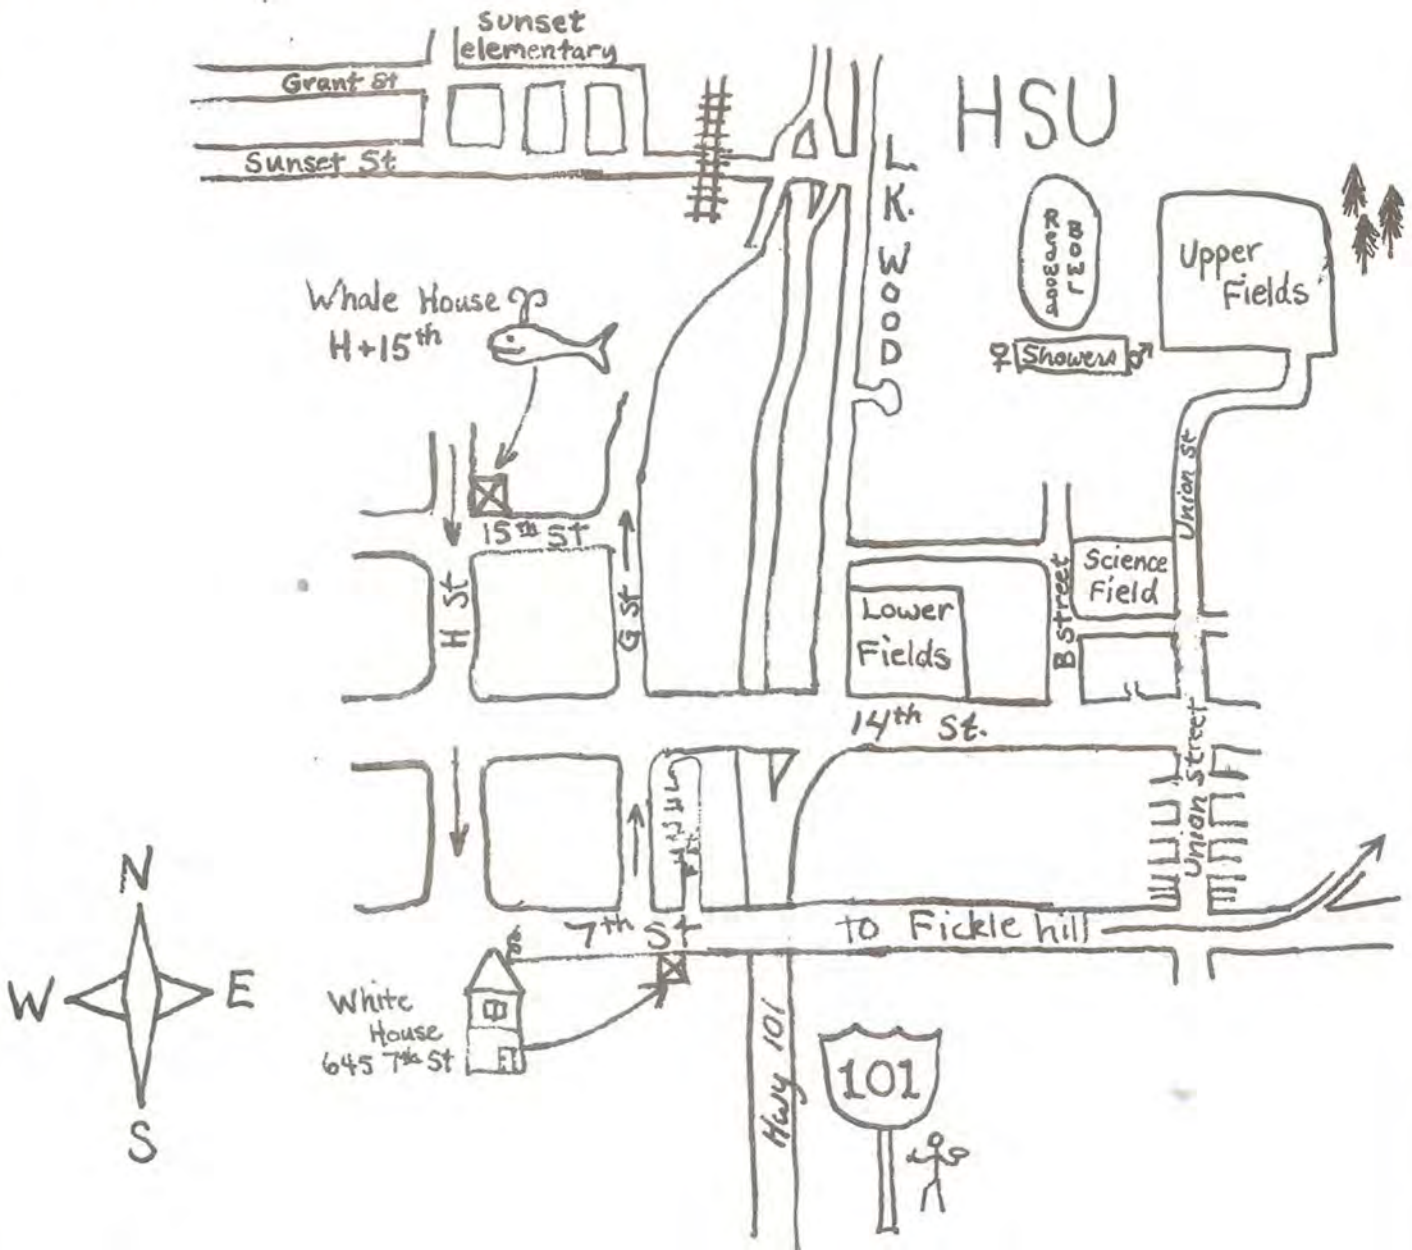 sunset
elementary
Grant St
Sunset St
HSU
L.K. WOOD
REDWOOD
BOWL
Upper
Fields
♀ Showers ♂
Whale House
H+15th
15th St
H St
G St
Union St
Science
Field
B street
Lower
Fields
14th St.
Union Street
7th St
to Fickle hill
White
House
645 7th St
Hwy 101
101
N
W
E
S